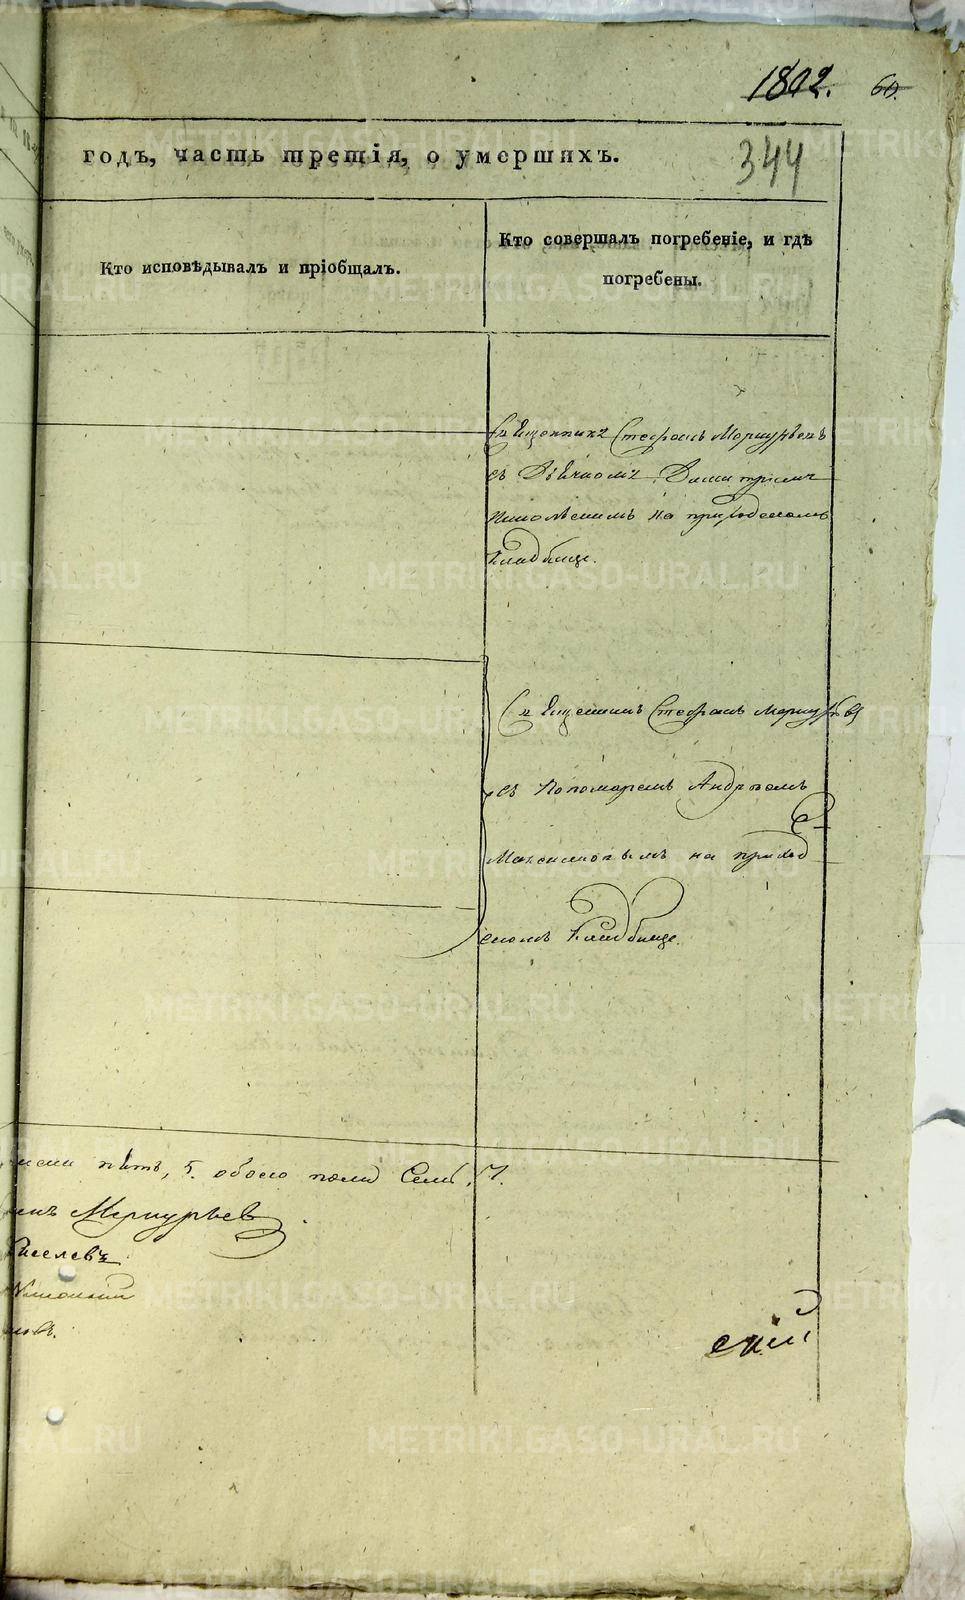 1802. 60.
годъ, часть третія, о умершихъ. 344
Кто исповѣдывалъ и пріобщалъ.
Кто совершалъ погребеніе, и гдѣ
погребены.
Священникъ Стефанъ Меркурьевъ
съ Діякномъ
на приходскомъ
кладбище.
Священникъ Стефанъ Меркурьевъ
съ Пономаремъ Андреемъ
Максимовымъ на приход
скомъ кладбище.
пять, 5. обоего пола Семь, 7.
Меркурьевъ
Киселевъ
скій
METRIKI.GASO-URAL.RU